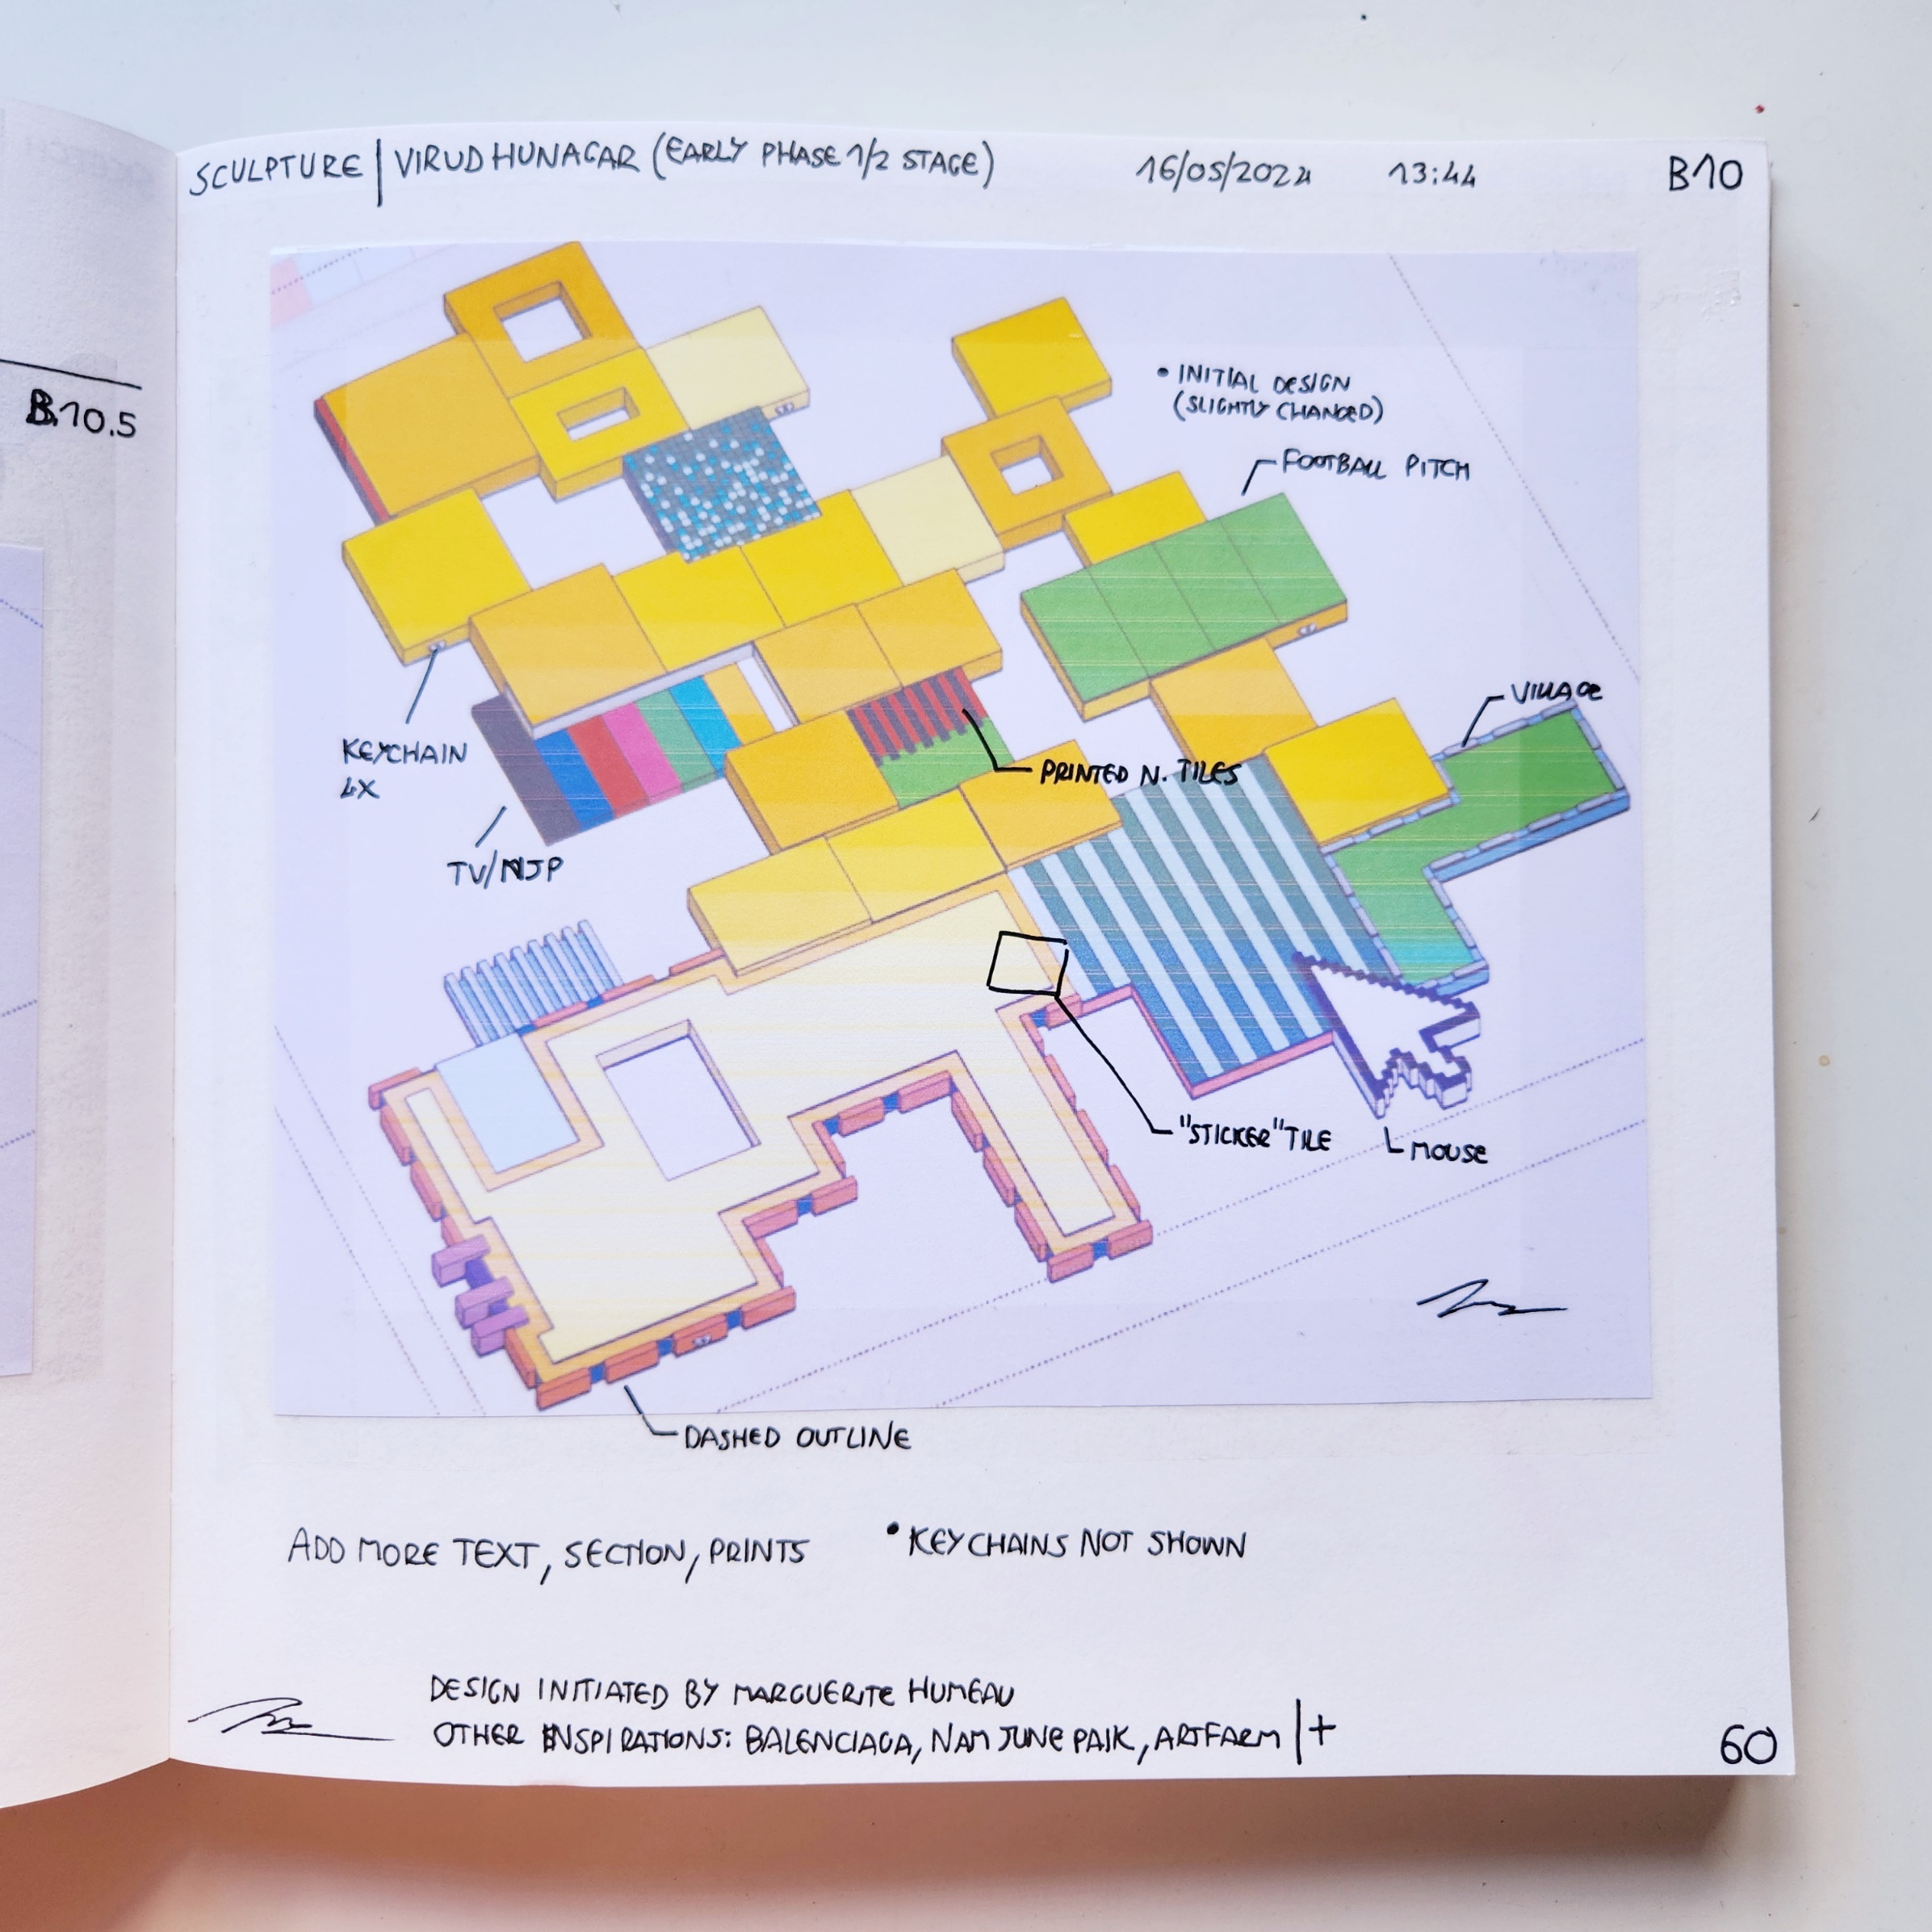 B.10.5
SCULPTURE | VIRUDHUNAGAR (EARLY PHASE 1/2 STAGE) 16/05/2024 13:44 B10
• INITIAL DESIGN
(SLIGHTLY CHANGED)
FOOTBALL PITCH
VILLAGE
KEYCHAIN
4X
PRINTED N. TILES
TV/NJP
"STICKER" TILE
MOUSE
DASHED OUTLINE
ADD MORE TEXT, SECTION, PRINTS • KEYCHAINS NOT SHOWN
DESIGN INITIATED BY MARGUERITE HUMEAU
OTHER INSPIRATIONS: BALENCIAGA, NAM JUNE PAIK, ARTFARM |+
60